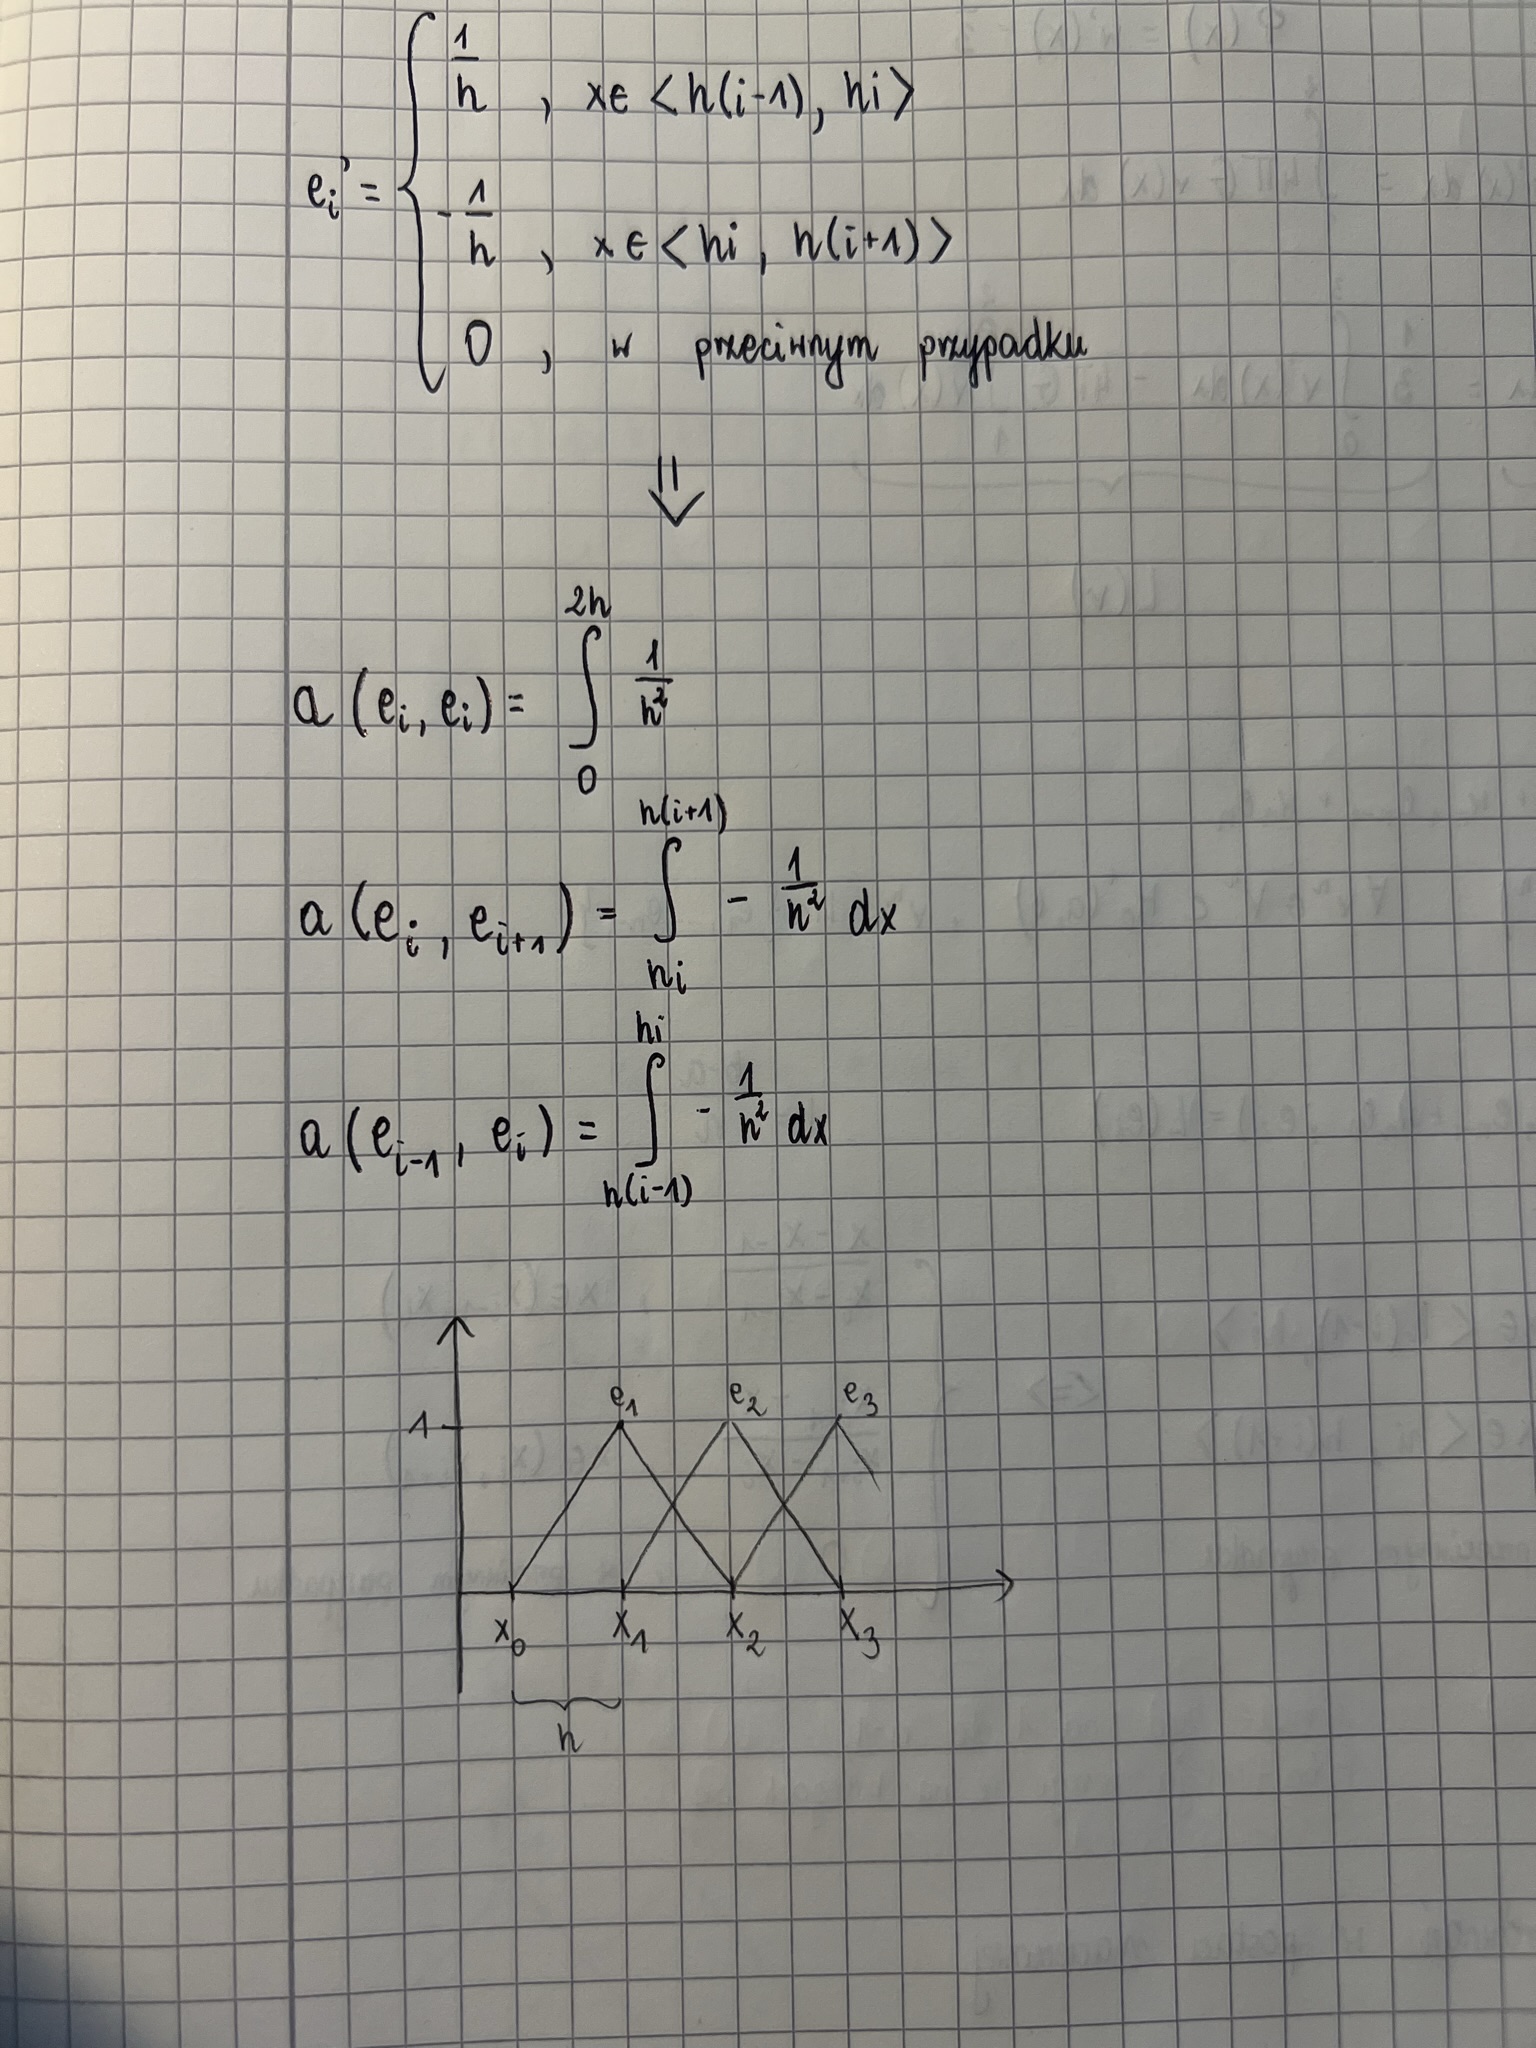 e_i' = { 1/h , x∈ <h(i-1), hi>
- 1/h , x∈ <hi, h(i+1)>
0 , w przeciwnym przypadku
⇓
a (e_i, e_i) = ∫_0^{2h} 1/h²
a (e_i, e_{i+1}) = ∫_{hi}^{h(i+1)} - 1/h² dx
a (e_{i-1}, e_i) = ∫_{h(i-1)}^{hi} - 1/h² dx
1 e_1 e_2 e_3
x_0 x_1 x_2 x_3
h